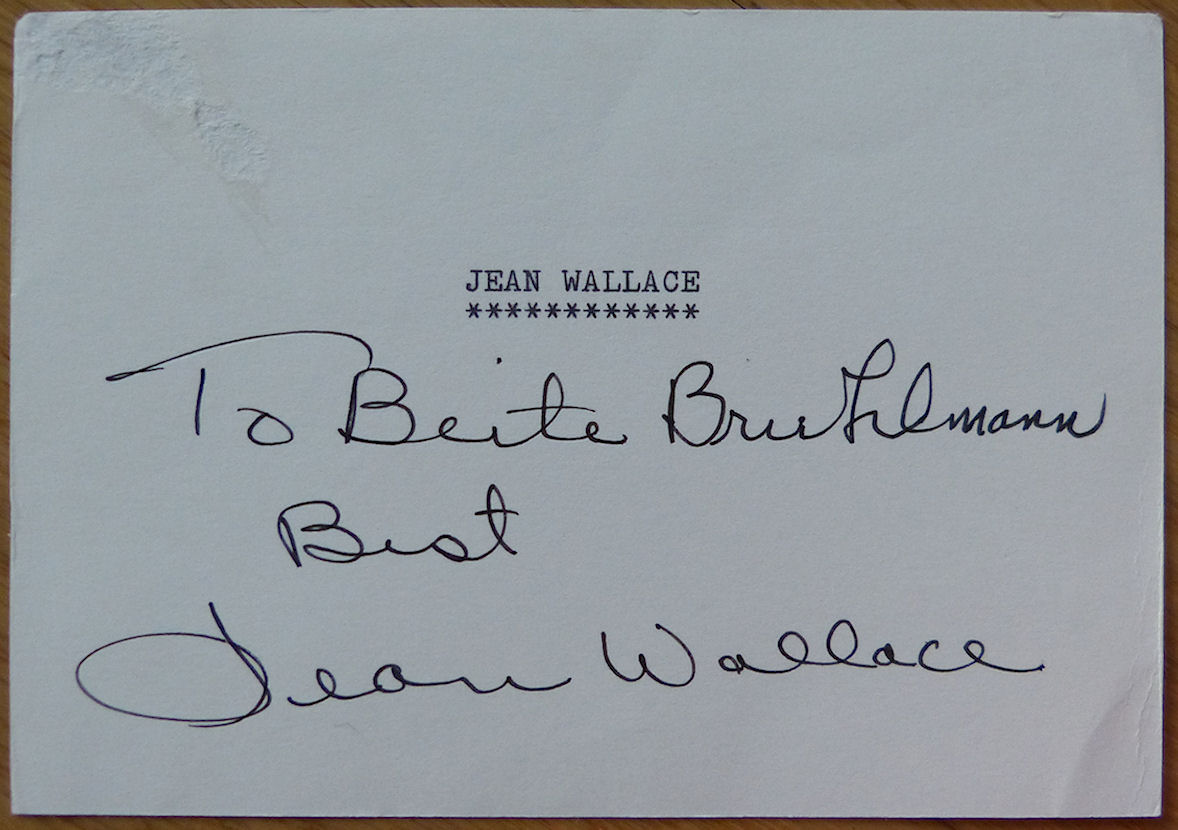 JEAN WALLACE
************
To Beite Bruehlmann
Best
Jean Wallace